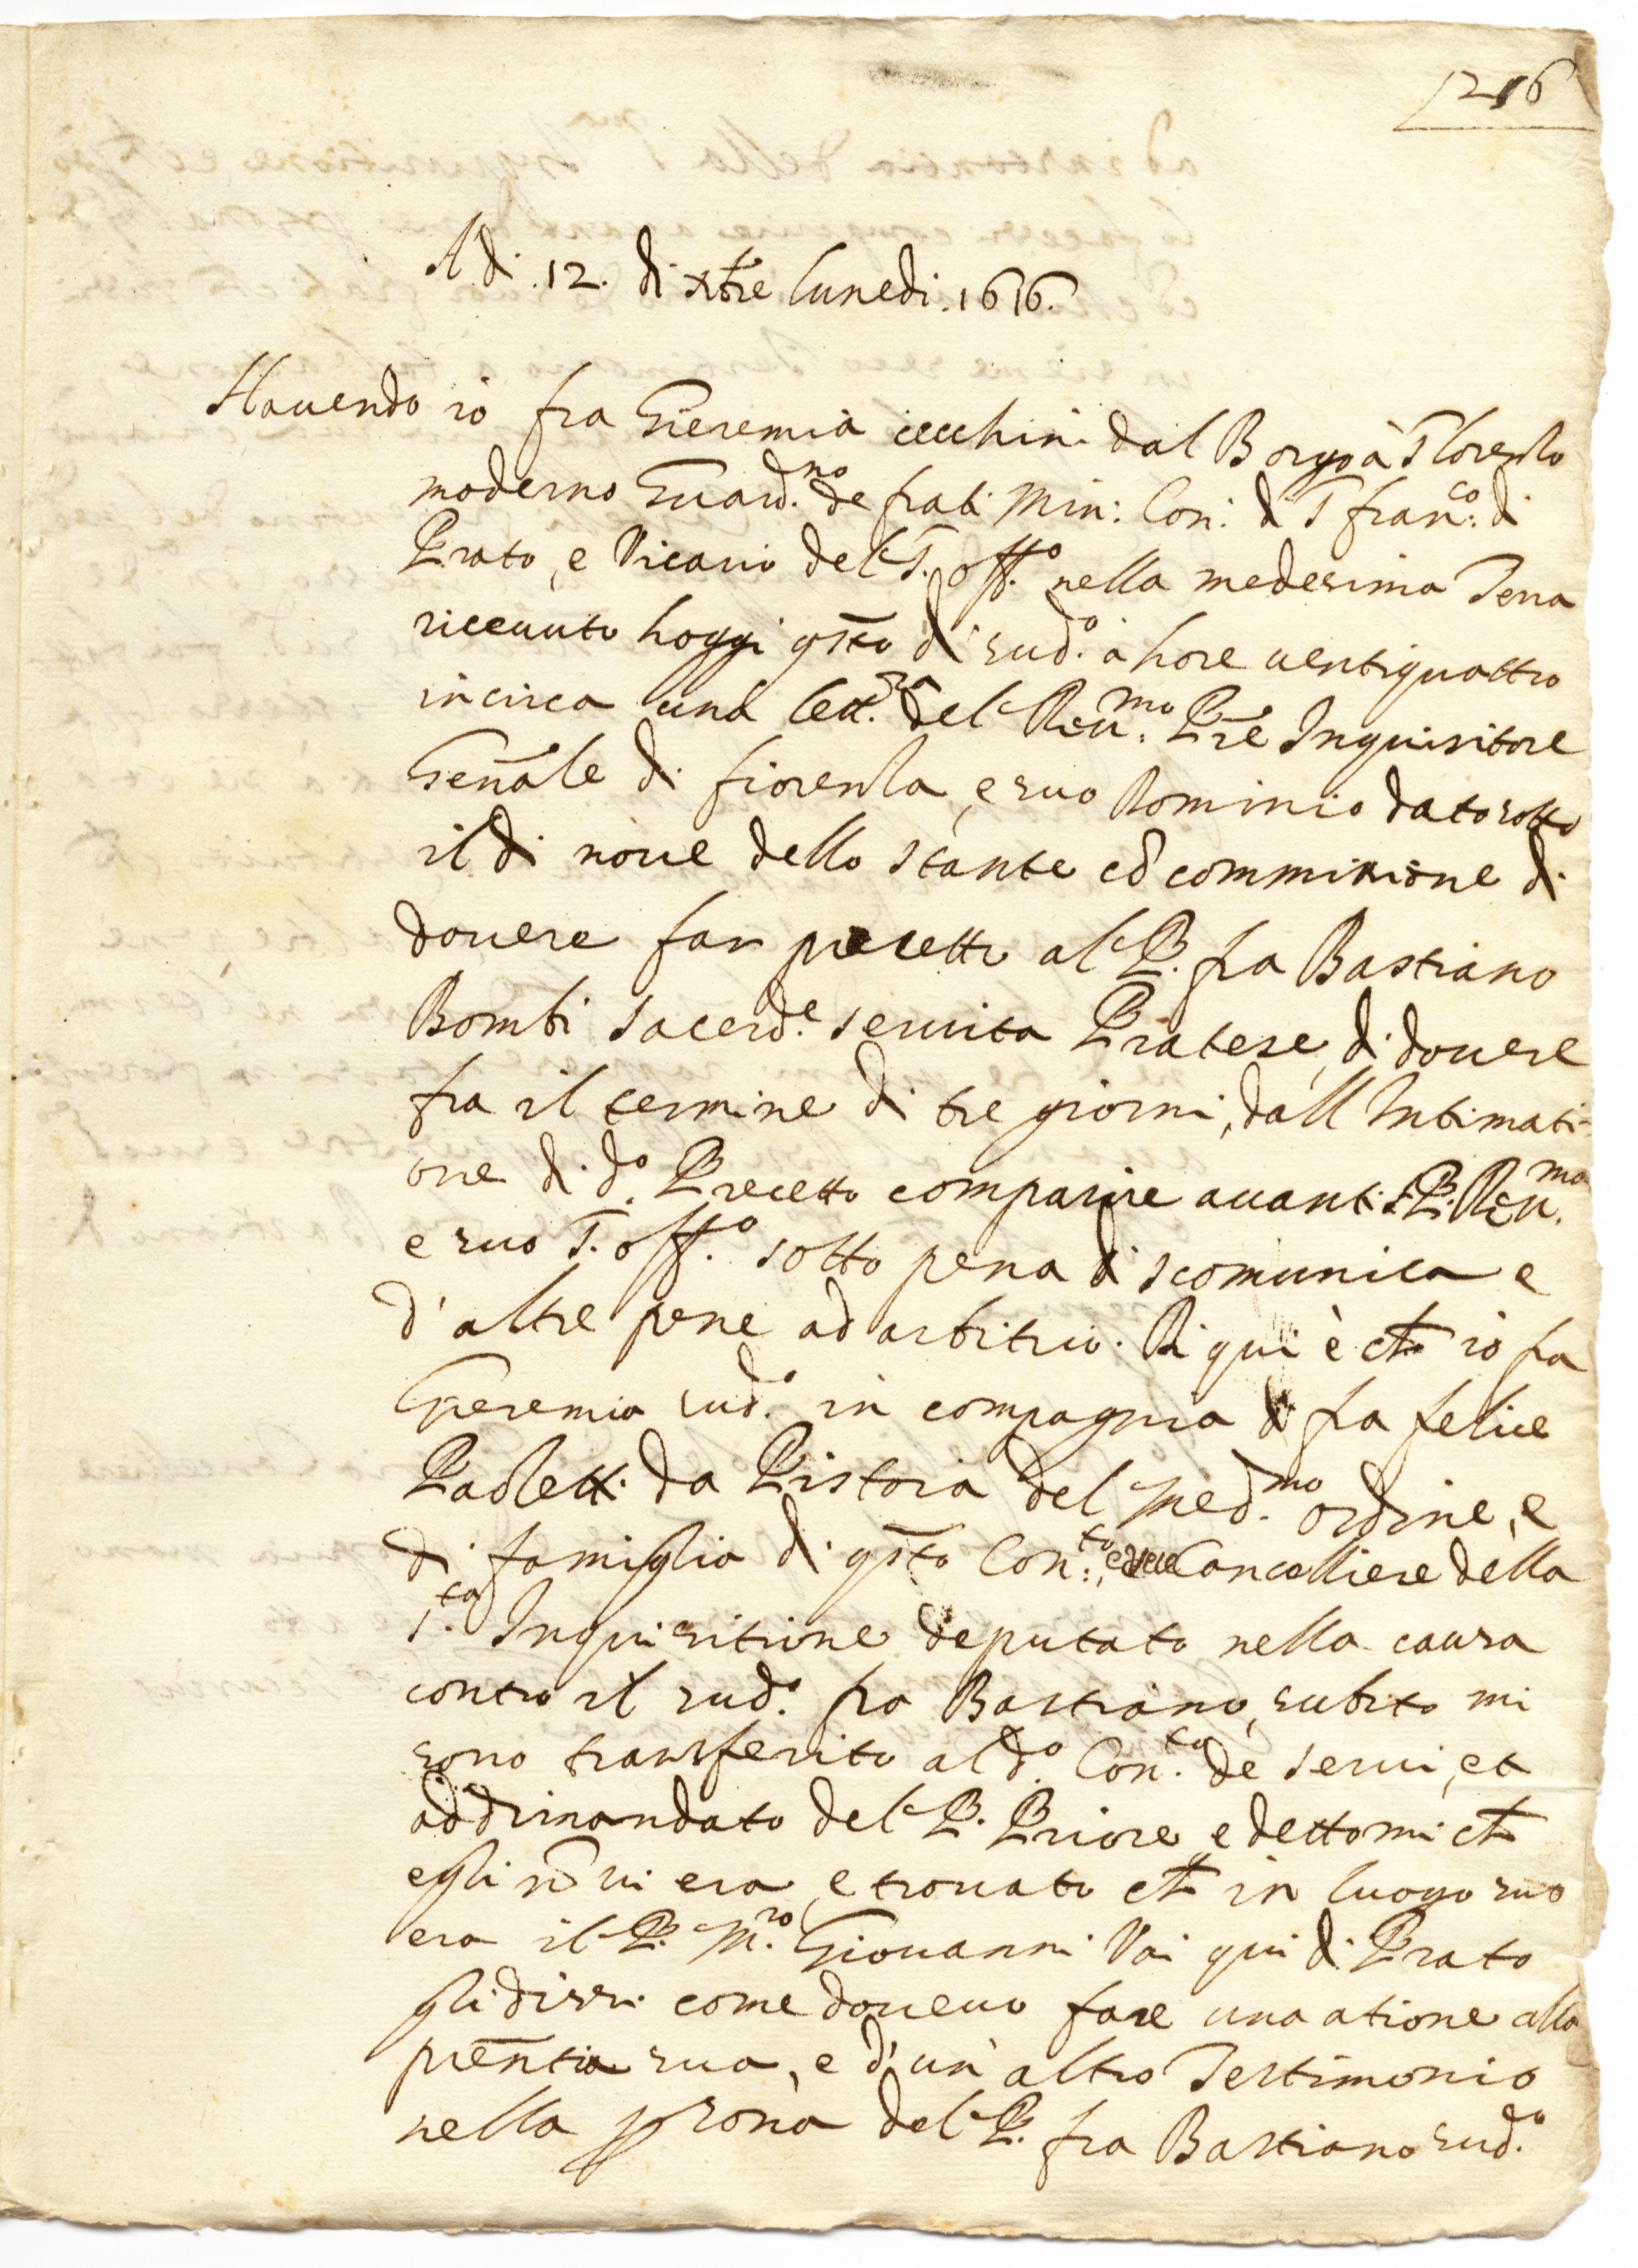 1216
A di .12. di xbre lunedi .1616.
Hauendo io fra Gieremia cecchini dal Borgo à S lorenzo
moderno Guard.no de frati Min: Con: di S fran:co di
Prato, e Vicario del S. off.o nella medesima Terra
riceuuto hoggi qsto di sud.o à hore uentiquattro
incirca una lett.ra del Reu.mo Pre Inquisitore
Genãle di fiorenza, e suo Dominio dato sotto
il di noue dello stante cõ commissione di
douere far precetto al P. fra Bastiano
Bombi sacerd.e seruita Pratese, di douere
fra il termine di tre giorni, dall Intimati-
one di d.o Precetto comparire auanti S. P. Reu.ma
e suo S. off.o sotto pena di scomunica e
d'altre pene ad arbitrio. Di qui è ch io fra
Gieremia sud.o in compagnia di fra felice
Paoletti da Pistoia del med.mo ordine, e
di famiglia di qsto Con:to, Cancelliere della
S.ta Inquisitione deputato nella causa
contro il sud.o fra Bastiano, subito mi
sono transferito al d.o Con.to de serui, et
addimandato del P. Priore, e dettomi ch
egli nõ ui era, e trouato ch in luogo suo
era il P. M.ro Giouanni Vai qui di Prato
gli dissi come doueuo fare una atione alla
presẽntia sua, e d'un altro Testimonio
nella psona del P. fra Bastiano sud.o